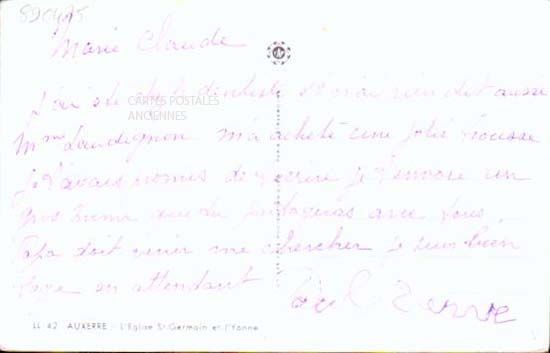 890475
Marie Claude
J'ai été chez le dentiste je n'ai rien dit aussi
CARTES POSTALES
ANCIENNES
Mme Landignon m'a acheté une jolie trousse
je t'avais promis de t'écrire je t'envoie un
gros que tu partageras avec tous
Papa doit venir me chercher je suis bien
sage en attendant
LL 42 AUXERRE - L'Eglise St-Germain et l'Yonne